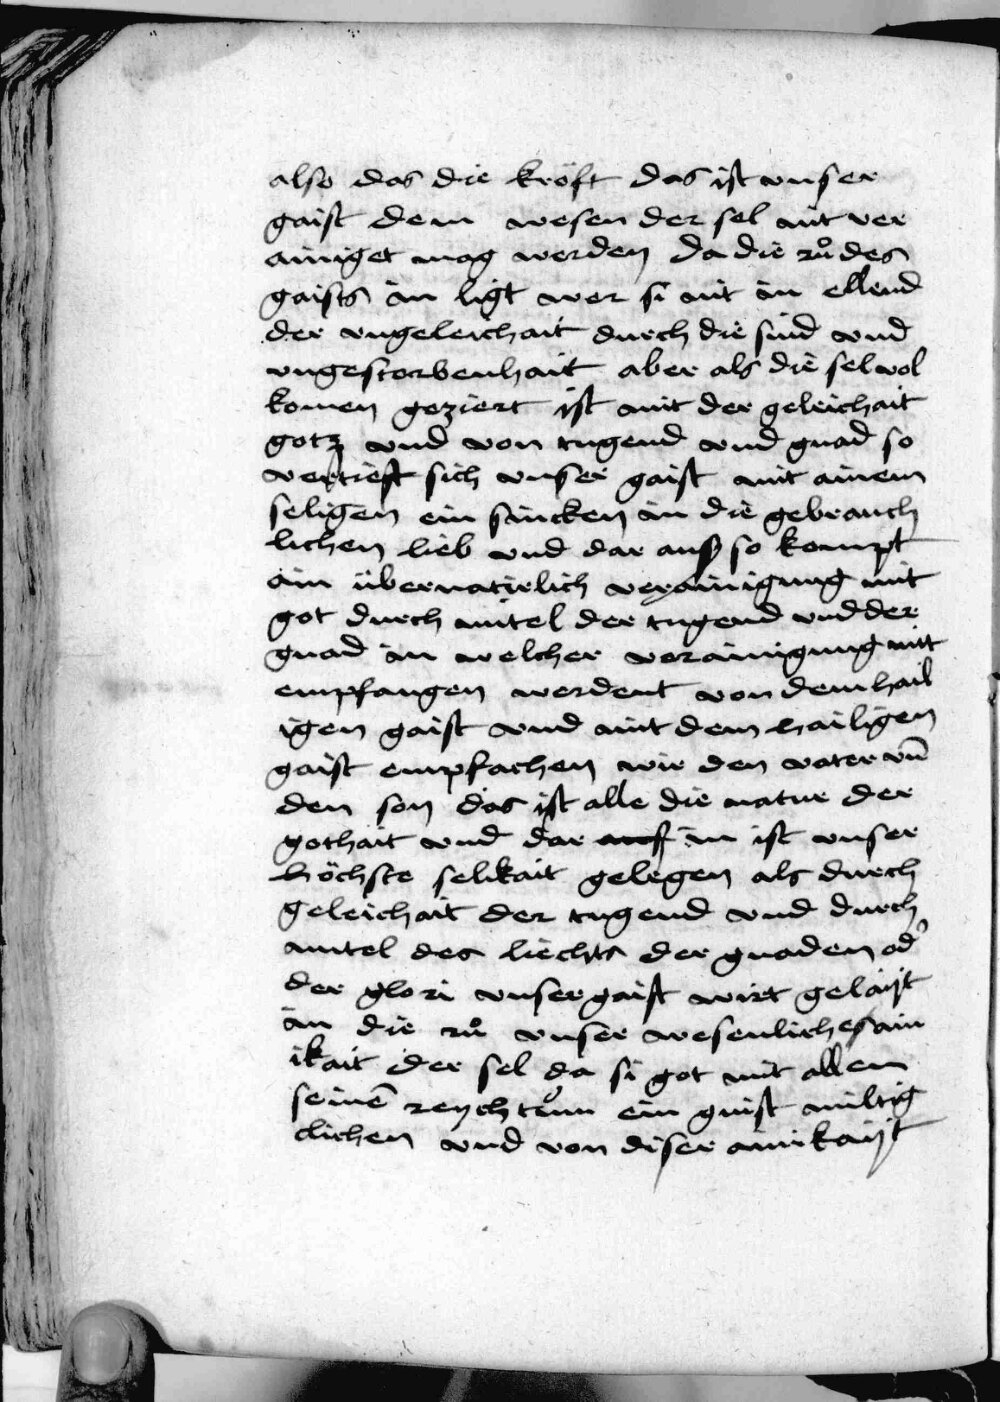 also das die kröft das ist vnser
gaist dem wesen der sel nit ver
ainiget mag werden da die rů des
gaists in ligt wer si nit in ellend
der vngeleichait durch die sünd vnd
vngestorbenhait aber als die sel vol
komen geziert ist mit der geleichait
gotz vnd von tugend vnd gnad so
vertieft sich vnser gaist mit ainem
seligen ein sincken in die gebrauch
lichen lieb vnd dar auß so kompt
ain übernatirlich verainigung mit
got durch mitel der tugend vnd der
gnad in welcher verainigung mitt
empfangen werdent von dem hail
igen gaist vnd mit dem hailigen
gaist empfachen wir den vater vn̄
den son das ist alle die natur der
gothait vnd dar auff in ist vnser
höchste selikait gelegen als durch
geleichait der tugend vnd durch
mitel des liechts der gnaden od'
der glori vnser gaist wirt gelaijt
in die rů vnser wesenliches ain
ikait der sel da si got mit allem
seinē reychtům ein guist miltig
clichen vnd von diser ainikaijt